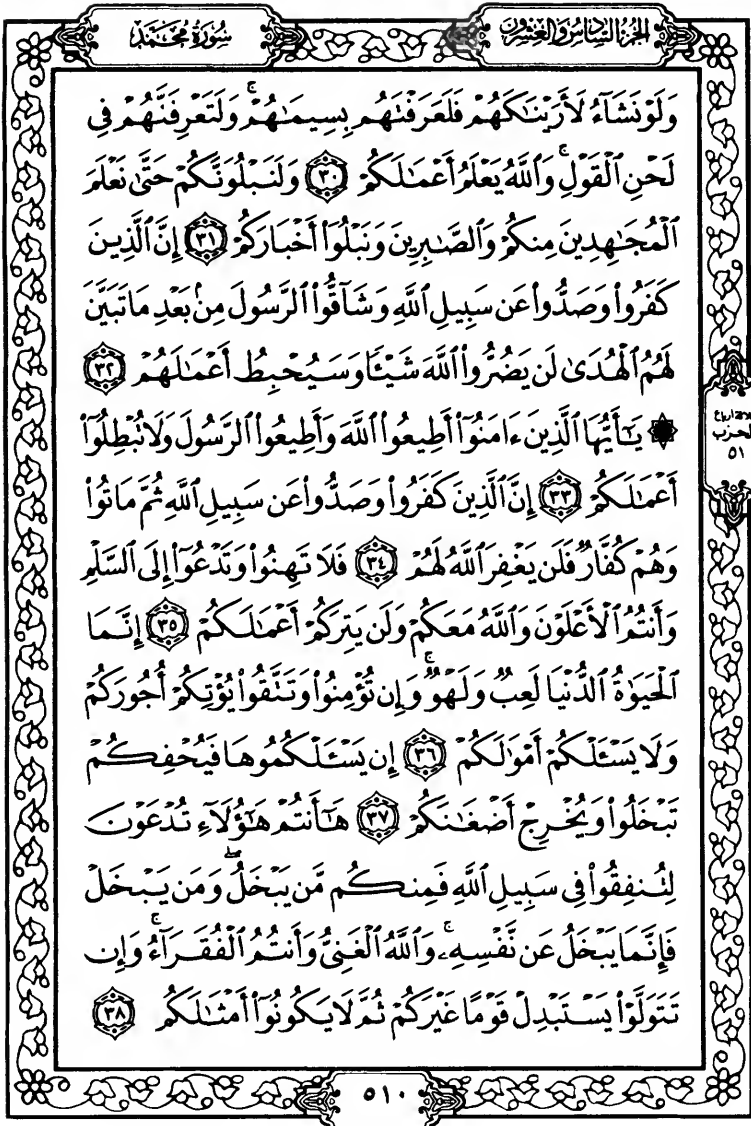 الجزء السادس والعشرون
سورة محمد
وَلَوْ نَشَآءُ لَأَرَيْنَٰكَهُمْ فَلَعَرَفْتَهُم بِسِيمَٰهُمْ ۚ وَلَتَعْرِفَنَّهُمْ فِى
لَحْنِ ٱلْقَوْلِ ۚ وَٱللَّهُ يَعْلَمُ أَعْمَٰلَكُمْ ٣٠ وَلَنَبْلُوَنَّكُمْ حَتَّىٰ نَعْلَمَ
ٱلْمُجَٰهِدِينَ مِنكُمْ وَٱلصَّٰبِرِينَ وَنَبْلُوَا۟ أَخْبَارَكُمْ ٣١ إِنَّ ٱلَّذِينَ
كَفَرُوا۟ وَصَدُّوا۟ عَن سَبِيلِ ٱللَّهِ وَشَآقُّوا۟ ٱلرَّسُولَ مِنۢ بَعْدِ مَا تَبَيَّنَ
لَهُمُ ٱلْهُدَىٰ لَن يَضُرُّوا۟ ٱللَّهَ شَيْـًٔا وَسَيُحْبِطُ أَعْمَٰلَهُمْ ٣٢
۞ يَٰٓأَيُّهَا ٱلَّذِينَ ءَامَنُوٓا۟ أَطِيعُوا۟ ٱللَّهَ وَأَطِيعُوا۟ ٱلرَّسُولَ وَلَا تُبْطِلُوٓا۟
أَعْمَٰلَكُمْ ٣٣ إِنَّ ٱلَّذِينَ كَفَرُوا۟ وَصَدُّوا۟ عَن سَبِيلِ ٱللَّهِ ثُمَّ مَاتُوا۟
وَهُمْ كُفَّارٌ فَلَن يَغْفِرَ ٱللَّهُ لَهُمْ ٣٤ فَلَا تَهِنُوا۟ وَتَدْعُوٓا۟ إِلَى ٱلسَّلْمِ
وَأَنتُمُ ٱلْأَعْلَوْنَ وَٱللَّهُ مَعَكُمْ وَلَن يَتِرَكُمْ أَعْمَٰلَكُمْ ٣٥ إِنَّمَا
ٱلْحَيَوٰةُ ٱلدُّنْيَا لَعِبٌ وَلَهْوٌ ۚ وَإِن تُؤْمِنُوا۟ وَتَتَّقُوا۟ يُؤْتِكُمْ أُجُورَكُمْ
وَلَا يَسْـَٔلْكُمْ أَمْوَٰلَكُمْ ٣٦ إِن يَسْـَٔلْكُمُوهَا فَيُحْفِكُمْ
تَبْخَلُوا۟ وَيُخْرِجْ أَضْغَٰنَكُمْ ٣٧ هَٰٓأَنتُمْ هَٰٓؤُلَآءِ تُدْعَوْنَ
لِتُنفِقُوا۟ فِى سَبِيلِ ٱللَّهِ فَمِنكُم مَّن يَبْخَلُ ۖ وَمَن يَبْخَلْ
فَإِنَّمَا يَبْخَلُ عَن نَّفْسِهِۦ ۚ وَٱللَّهُ ٱلْغَنِىُّ وَأَنتُمُ ٱلْفُقَرَآءُ ۚ وَإِن
تَتَوَلَّوْا۟ يَسْتَبْدِلْ قَوْمًا غَيْرَكُمْ ثُمَّ لَا يَكُونُوٓا۟ أَمْثَٰلَكُم ٣٨
أرباع
الحزب
٥١
٥١٠